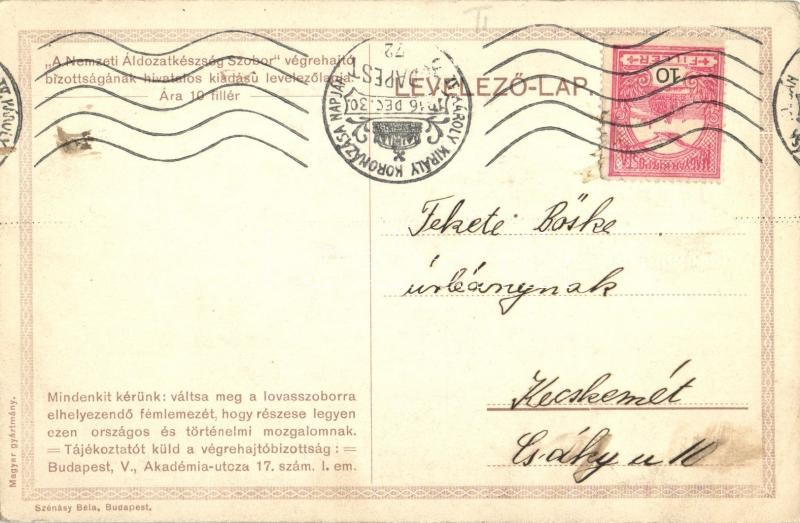 „A Nemzeti Áldozatkészség Szobor" végrehajtó
bizottságának hivatalos kiadású levelezőlapja.
Ára 10 fillér
LEVELEZŐ-LAP.
IV. KÁROLY KIRÁLY KORONÁZÁSA NAPJÁN
BUDAPEST
72
916 DEC. 30
10
FILLÉR
MAGYAR KIR. POSTA
Fekete Böske
úrleánynak
Kecskemét
Csáky u 10
Mindenkit kérünk: váltsa meg a lovasszoborra
elhelyezendő fémlemezét, hogy részese legyen
ezen országos és történelmi mozgalomnak.
= Tájékoztatót küld a végrehajtóbizottság: =
Budapest, V., Akadémia-utcza 17. szám. I. em.
Magyar gyártmány.
Szénásy Béla, Budapest.